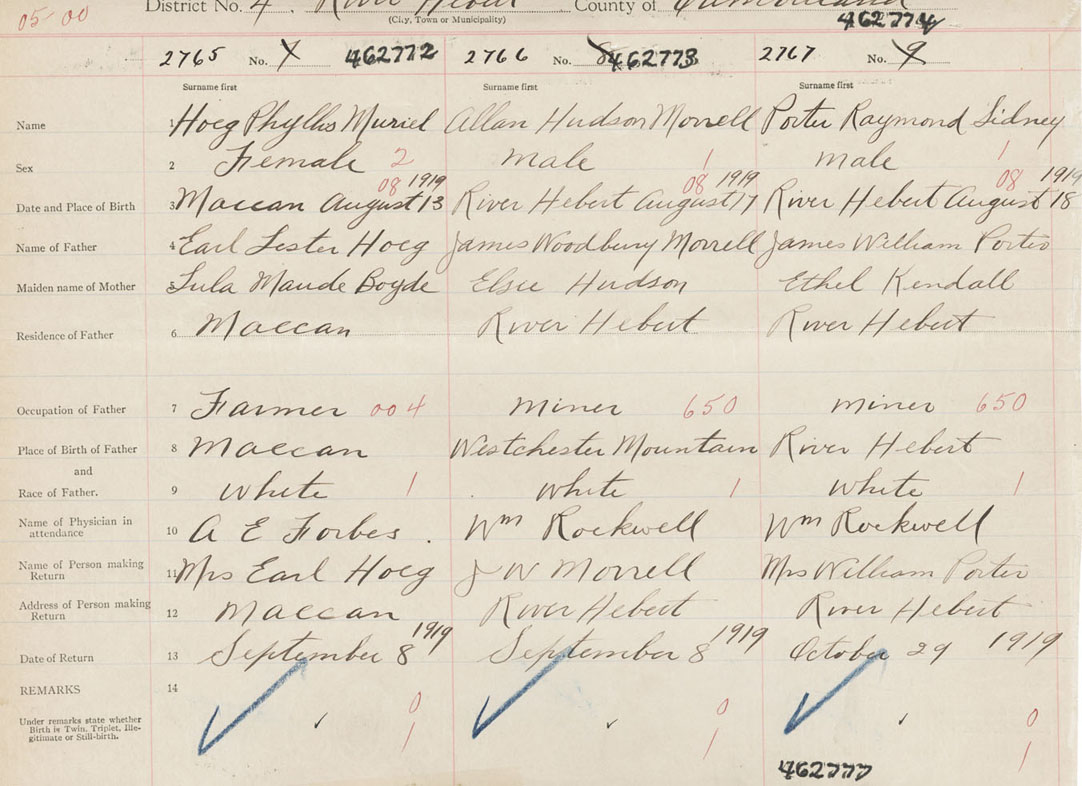 05-00
District No. 4. River Hebert County of Cumberland
(City, Town or Municipality)
462774
2765 No. 7 462772 2766 No. 8 462773 2767 No. 9
Surname first Surname first Surname first
Name 1 Hoeg Phyllis Muriel Allan Hudson Morrell Porter Raymond Sidney
Sex 2 Female 2 male 1 male 1
08 1919 08 1919 08 1919
Date and Place of Birth 3 Maccan August 13 River Hebert August 17 River Hebert August 18
Name of Father 4 Earl Lester Hoeg James Woodbury Morrell James William Porter
Maiden name of Mother 5 Lula Maude Boyde Elsie Hudson Ethel Kendall
Residence of Father 6 Maccan River Hebert River Hebert
Occupation of Father 7 Farmer 004 miner 650 miner 650
Place of Birth of Father 8 Maccan Westchester Mountain River Hebert
and
Race of Father. 9 white 1 white 1 white 1
Name of Physician in
attendance 10 A E Forbes. Wm Rockwell Wm Rockwell
Name of Person making
Return 11 Mrs Earl Hoeg J W Morrell Mrs William Porter
Address of Person making
Return 12 Maccan River Hebert River Hebert
Date of Return 13 September 8 1919 September 8 1919 October 29 1919
REMARKS 14
Under remarks state whether
Birth is Twin, Triplet, Ille-
gitimate or Still-birth.
0 0 0
1 1 1
462777